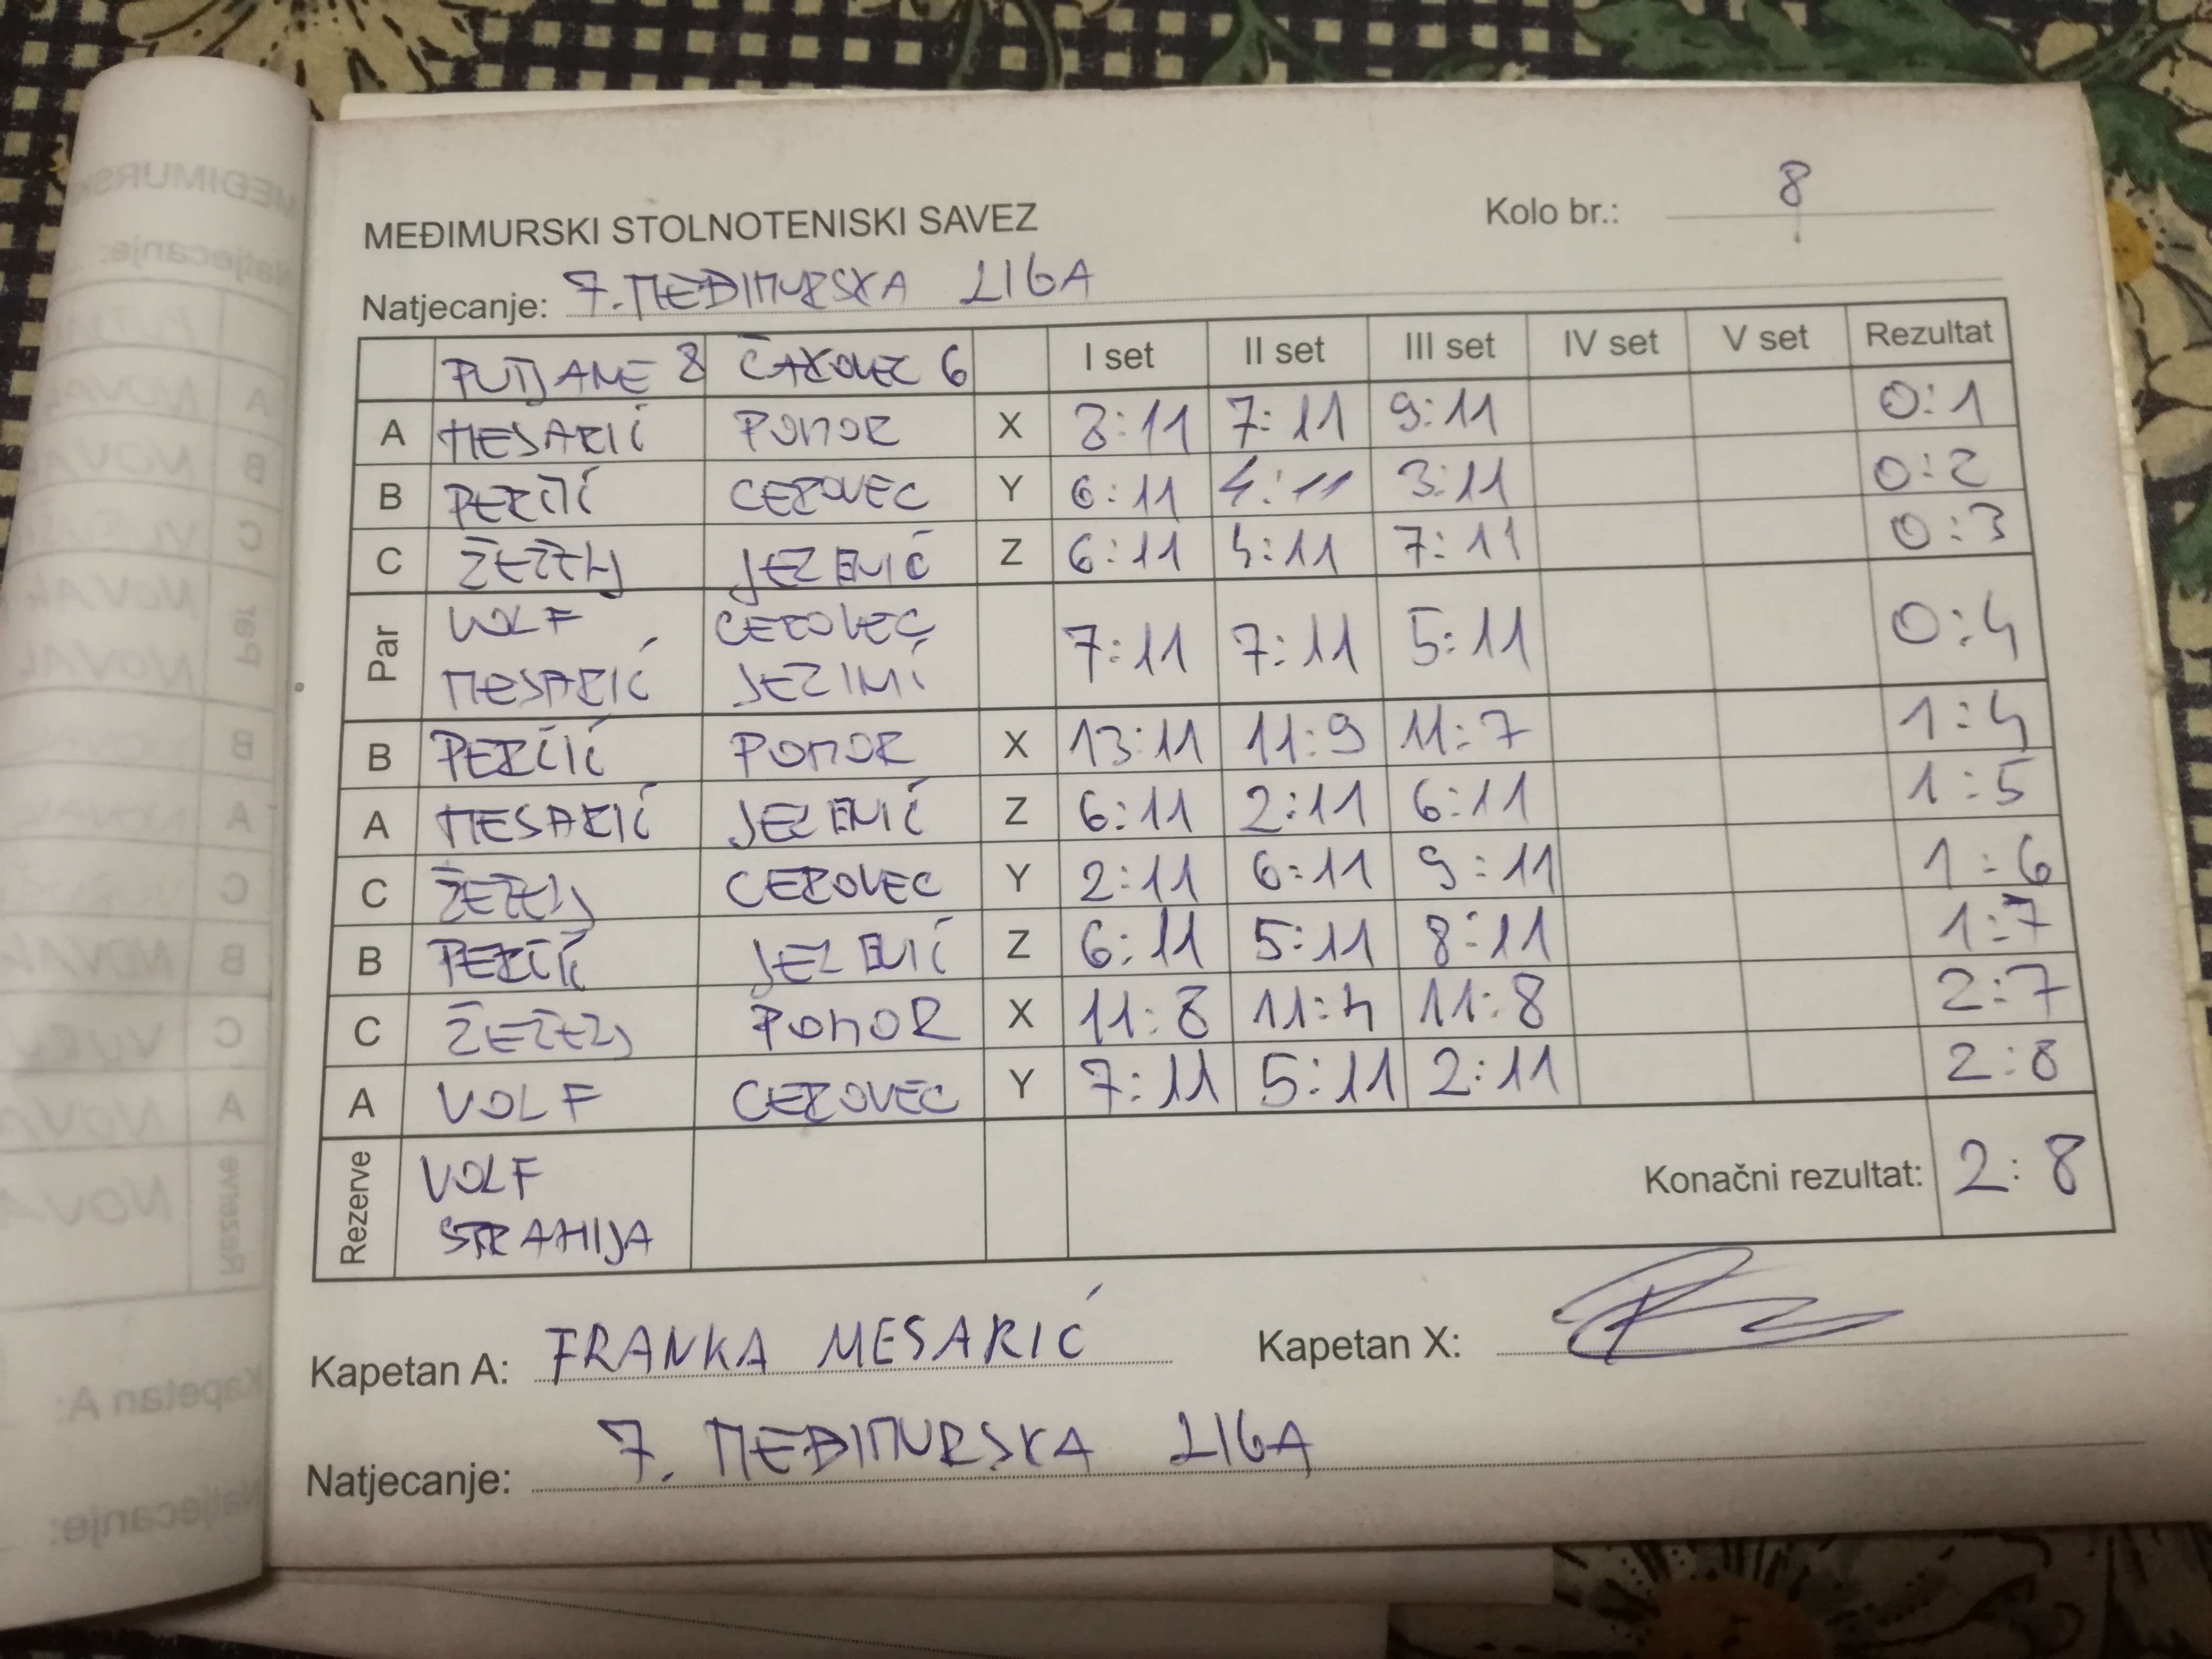 MEĐIMURSKI STOLNOTENISKI SAVEZ
Kolo br.: 8
Natjecanje: 7. MEĐIMURSKA LIGA
PUTJANE 8 ČAKOVEC 6 I set II set III set IV set V set Rezultat
A MESARIĆ POMOR X 8:11 7:11 9:11 0:1
B CEROVEC Y 6:11 4:11 3:11 0:2
C Z 6:11 4:11 7:11 0:3
Par
VOLF CEROVEC
MESARIĆ
7:11 7:11 5:11 0:4
B POMOR X 13:11 11:9 11:7 1:4
A MESARIĆ Z 6:11 2:11 6:11 1:5
C CEROVEC Y 2:11 6:11 9:11 1:6
B Z 6:11 5:11 8:11 1:7
C POMOR X 11:8 11:4 11:8 2:7
A VOLF CEROVEC Y 7:11 5:11 2:11 2:8
Rezerve
VOLF
STRAHIJA
Konačni rezultat: 2:8
Kapetan A: FRANKA MESARIĆ Kapetan X:
Natjecanje: 7. MEĐIMURSKA LIGA